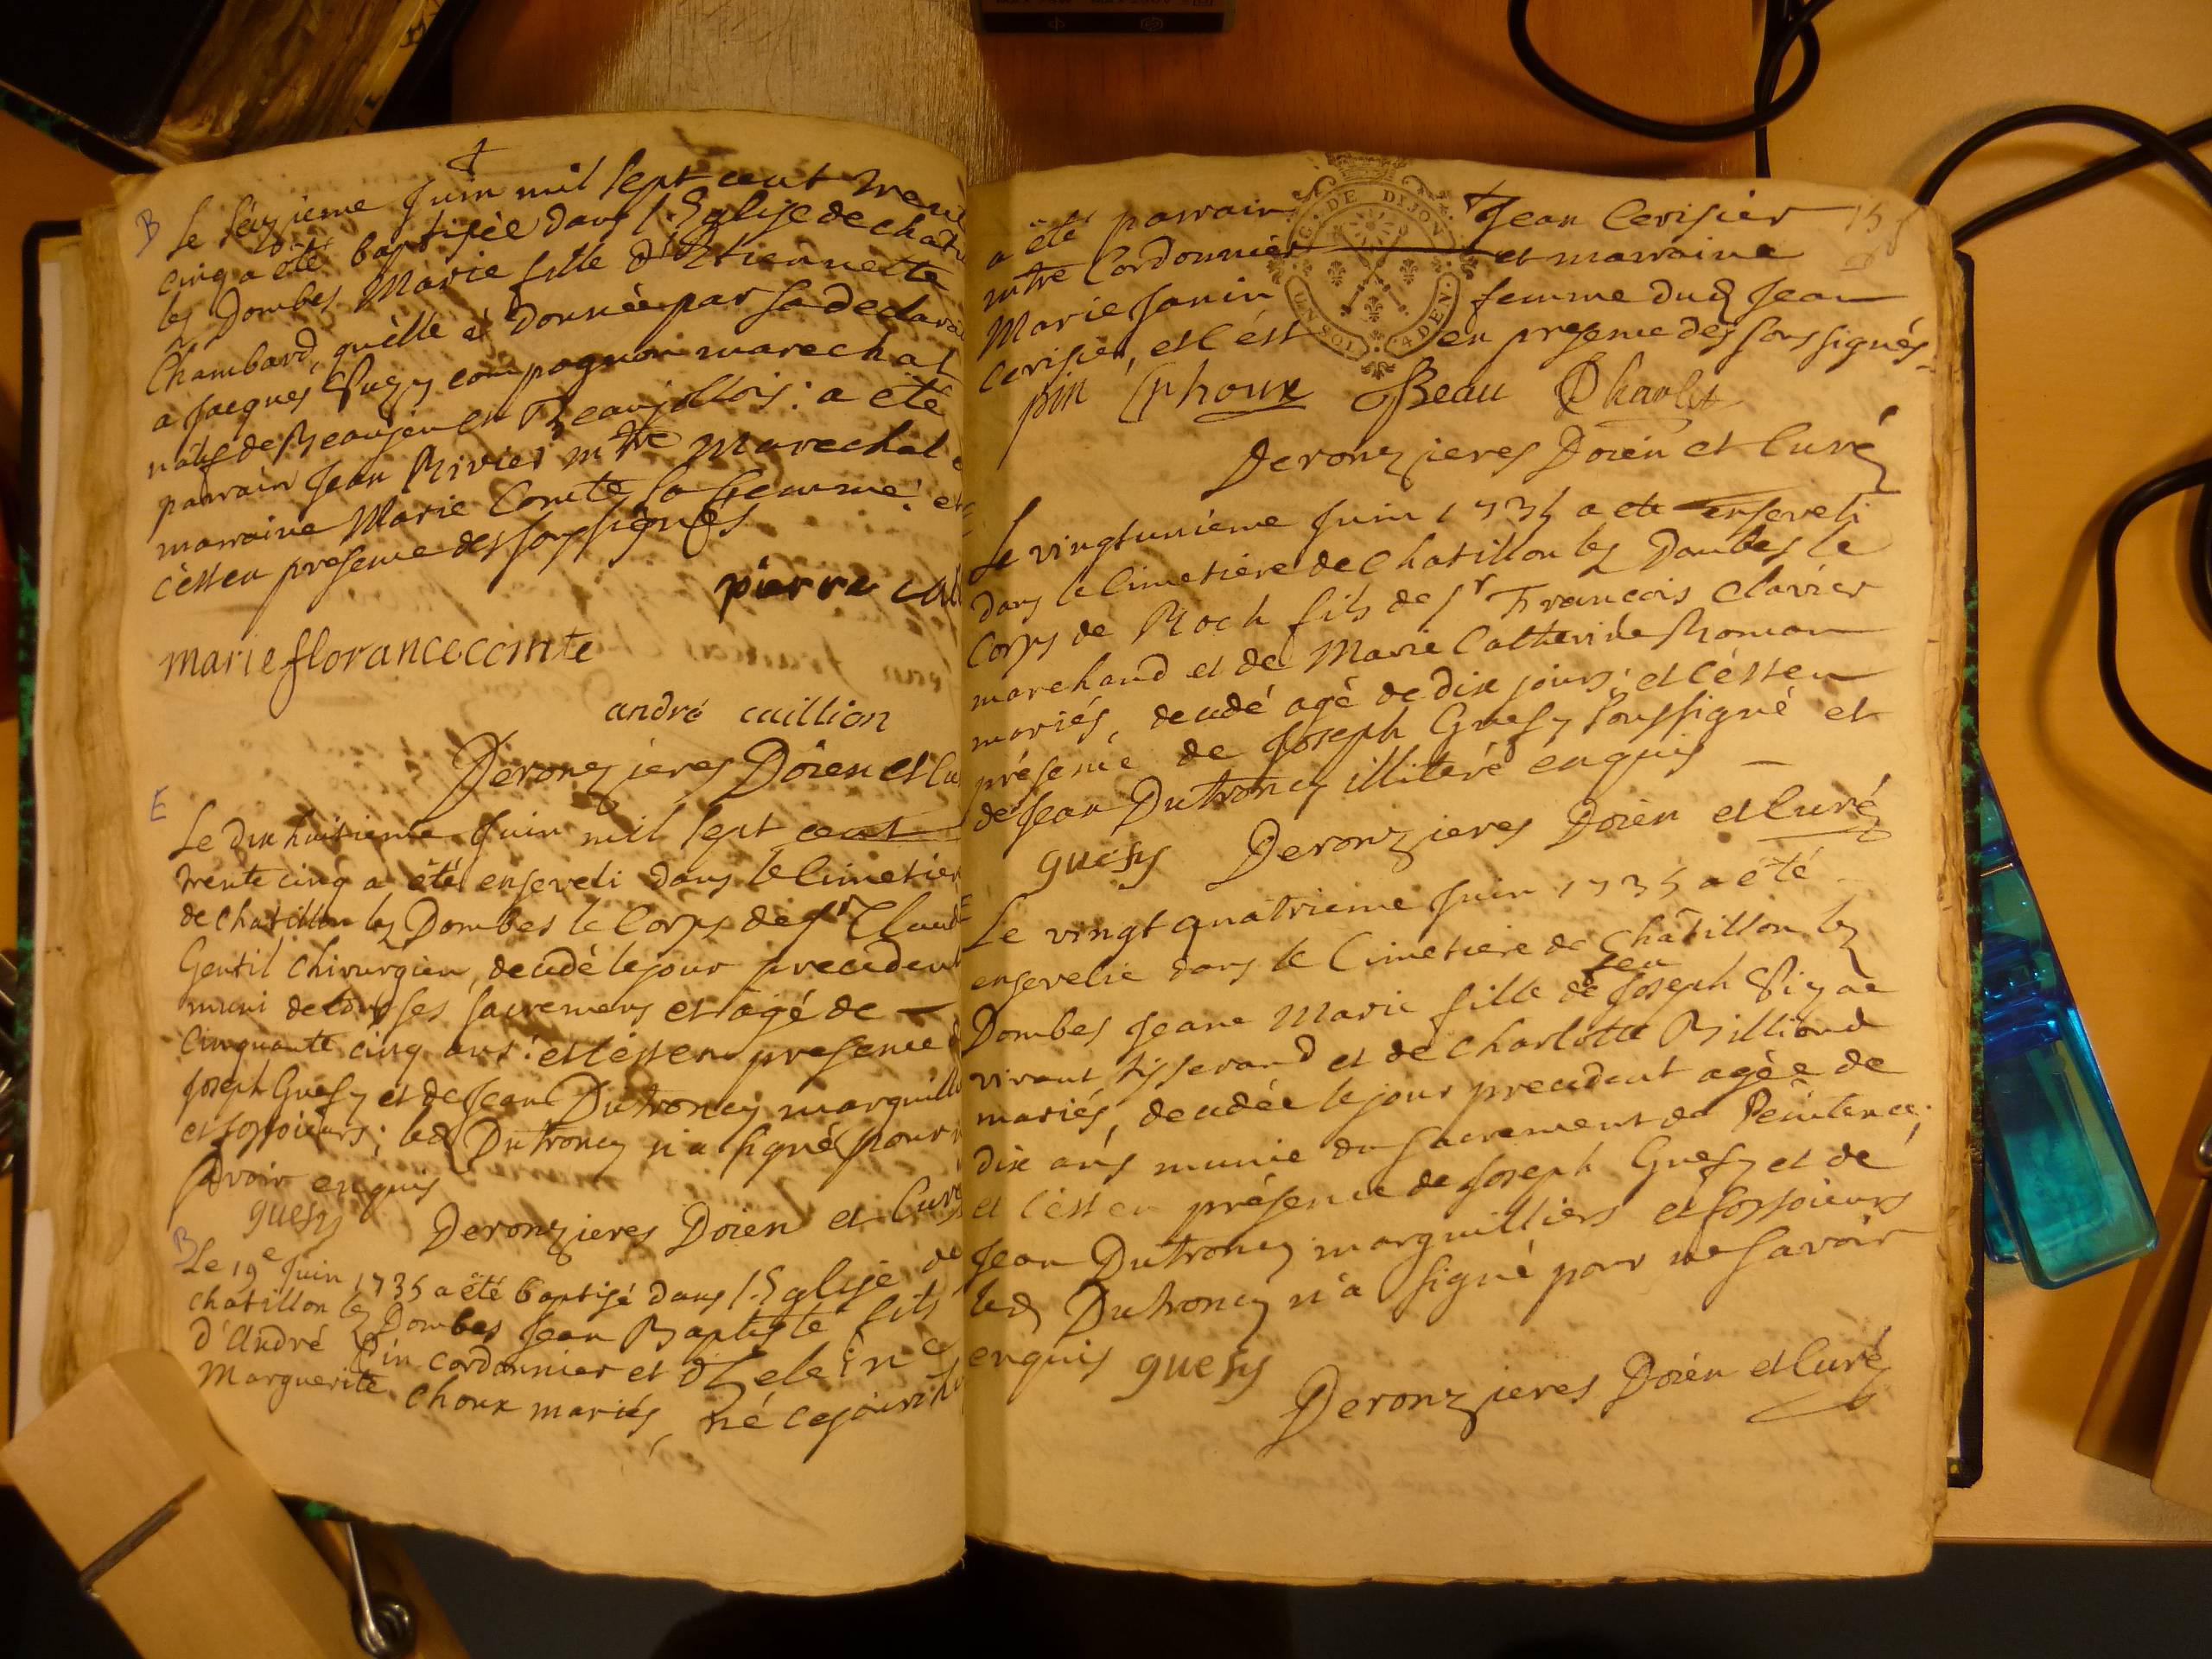 B
Le séizieme Juin mil sept cent trent
cinq a été baptisée dans l'Eglise de chati
les Dombes Marie fille d'Etiennette
Chambard, qu'elle a donnée par sa declarat
a Jacques Pugy compagnon marechal
natif de Beaujeu en Beaujollois: a été
parrain Jean Rivier mtre Marechal e
marraine Marie Comte sa femme: et
c'est en presence des soussignés
pierre cal
marie florance comte
andré caillion
Deronzieres Doien et Cu
E
Le dix huitieme Juin mil sept cent
trente cinq a été enseveli dans le Cimetier
de chatillon les Dombes le Corps de Sr Claud
Gentil chirurgien, decedé le jour precedent
muni de tous ses sacremens et agé de
Cinquante cinq ans: et c'est en presence d
Joseph Guesy et de Jean Dutroncy marguill
et fossoieurs; led Dutroncy n'a signé pour n
savoir enquis
guesy Deronzieres Doien et Curé
B
Le 19e Juin 1735 a été baptisé dans l'Eglise de
chatillon les Dombes Jean Baptiste fils
d'André Pin cordonnier et d'Heleine
Marguerite Choux mariés, né ce jourd'h
a été parrain Jean Cerisier
mtre Cordonnier et marraine
Marie Janin femme dud Jean
Cerisier, et c'est en presence des soussignés
pin Choux Beau Charlet
Deronzieres Doien et Curé
Le vingtunieme Juin 1735 a ete enseveli
dans le Cimetiere de Chatillon les Dombes le
Corps de Roch fils de Sr Francois Clavier
marchand et de Marie Catherine Roman
mariés, decedé agé de dix jours: et c'est en
présence de Joseph Guesy soussigné et
de Jean Dutroncy illiteré enquis
guesy Deronzieres Doien et Curé
E
Le vingt quatrieme Juin 1735 a été
ensevelie dans le Cimetiere de Chatillon les
Dombes Jeane Marie fille de feu Joseph Vigne
vivant tisserand et de Charlotte Billioud
mariés, decedée le jour precedent agée de
dix ans munie du sacrement de Penitence;
et c'est en présence de Joseph Guesy et de
Jean Dutroncy marguilliers et fossoieurs
led Dutroncy n'a signé pour ne savoir
enquis guesy
Deronzieres Doien et Curé